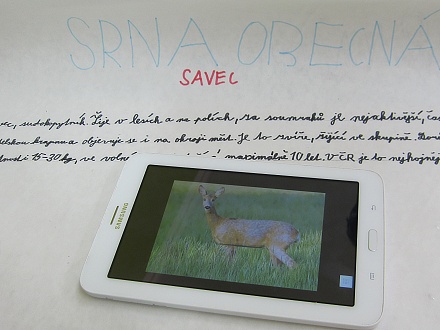 SRNA OBECNÁ
SAVEC
sudokopytník. Žije v lesích a na polích, za soumraku je nejaktivnější,
objevuje se i na okraji měst. Je to zvíře, žijící ve skupině.
15-30 kg, ve maximálně 10 let. V ČR je to
SAMSUNG